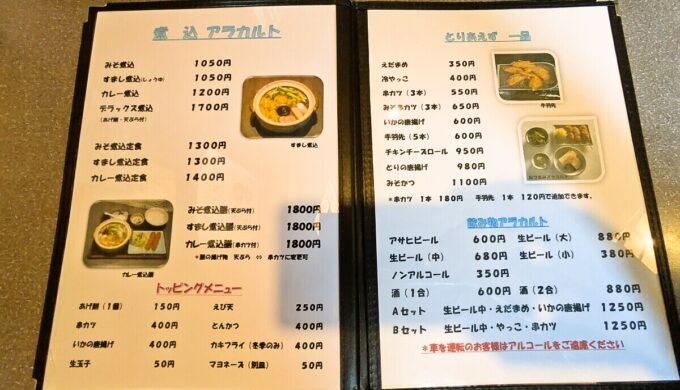 煮込 アラカルト
みそ煮込 1050円
すまし煮込(しょうゆ) 1050円
カレー煮込 1200円
デラックス煮込 1700円
(あげ餅・天ぷら付)
すまし煮込
みそ煮込定食 1300円
すまし煮込定食 1300円
カレー煮込定食 1400円
みそ煮込膳(天ぷら付) 1800円
すまし煮込膳(天ぷら付) 1800円
カレー煮込膳(串カツ付) 1800円
*膳の揚げ物 天ぷら ⇔ 串カツに変更可
カレー煮込膳
トッピングメニュー
あげ餅(1個) 150円 えび天 250円
串カツ 400円 とんかつ 400円
いかの唐揚げ 400円 カキフライ(冬季のみ) 400円
生玉子 50円 マヨネーズ(別皿) 50円
とりあえず 一品
えだまめ 350円
冷やっこ 400円
串カツ(3本) 550円
みそ串カツ(3本) 650円
いかの唐揚げ 600円
手羽先(5本) 600円
チキンチーズロール 950円
とりの唐揚げ 980円
みそかつ 1100円
手羽先
*串カツ 1本 180円 手羽先 1本 120円で追加できます。
飲み物アラカルト
アサヒビール 600円 生ビール(大) 880円
生ビール(中) 680円 生ビール(小) 380円
ノンアルコール 350円
酒(1合) 600円 酒(2合) 880円
Aセット 生ビール中・えだまめ・いかの唐揚げ 1250円
Bセット 生ビール中・やっこ・串カツ 1250円
*車を運転のお客様はアルコールをご遠慮ください